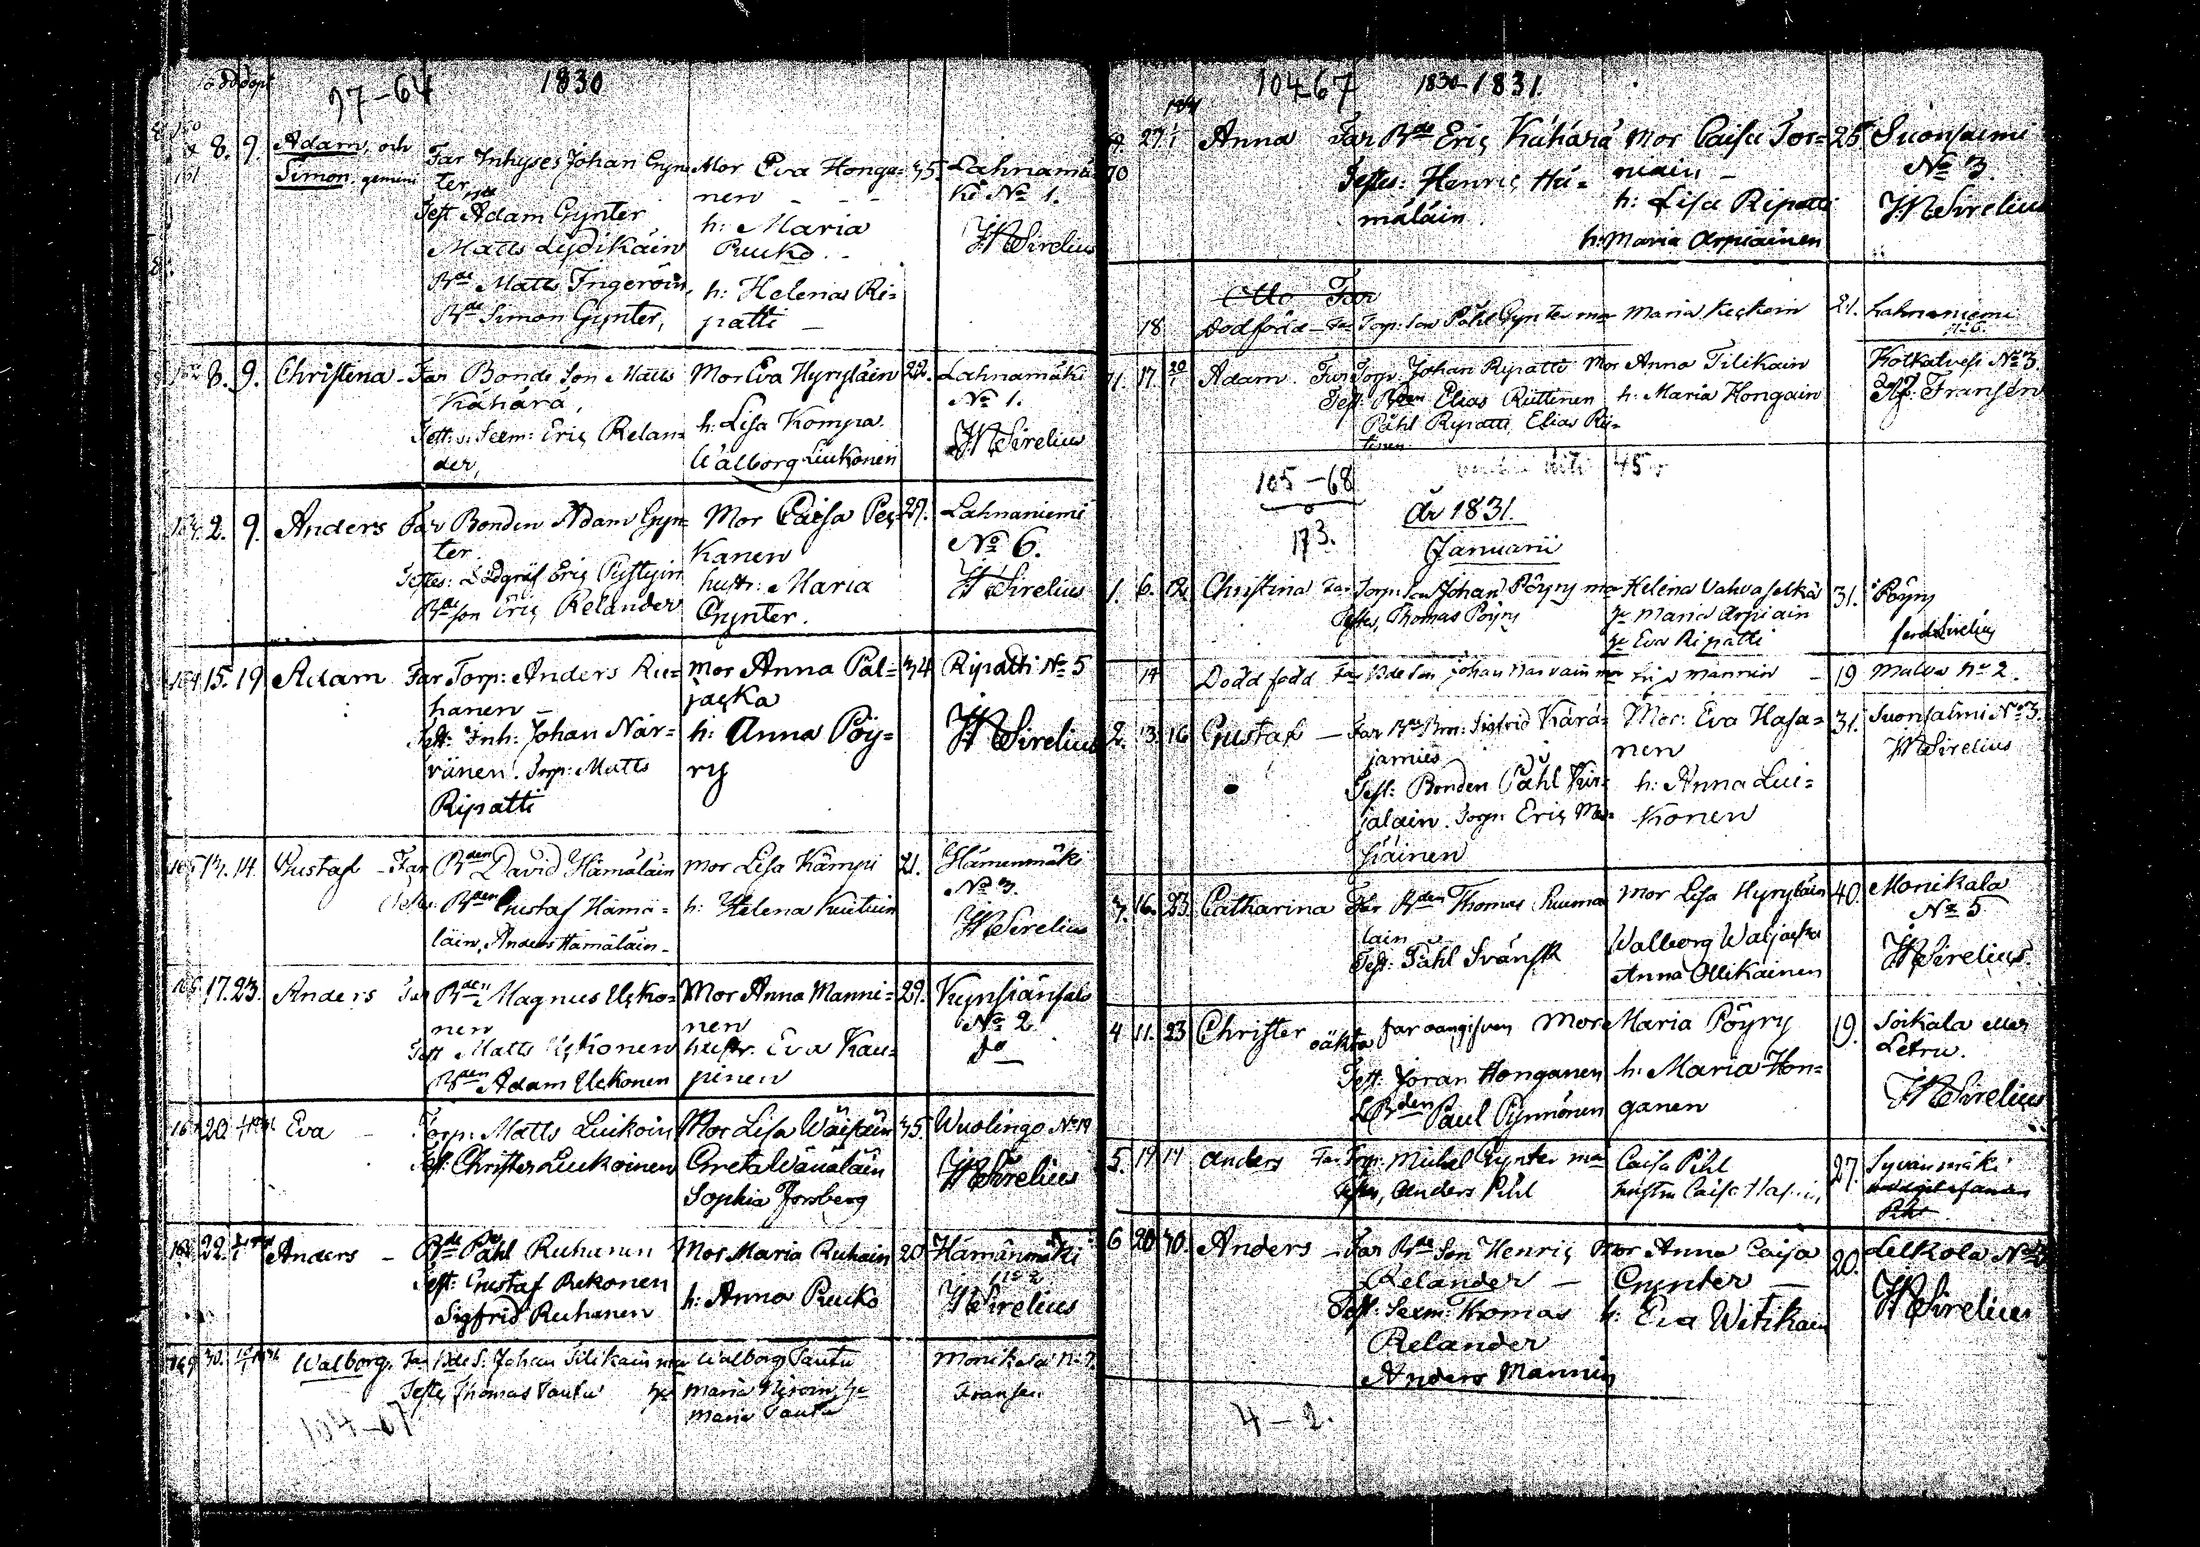 född döpt
97-64
1830
150 & 151
8. 9. Adam, och
Simon. gemini
Far Inhyses Johan Gyn-
ter
Test Adam Gynter
Matts Lydikäin
Bde Matts Ingeröin,
Bde Simon Gynter,
Mor Eva Honga-
nen
h: Maria
Ruuko
h: Helena Ri-
patti
35.
Lahnamä-
ki No 1.
Sirelius
8. 9. Christina - Far Bonde Son Matts
Kähärä,
Test: Sexm: Eric Relan-
der,
Mor Eva Hyryläin
h: Lisa Kompa.
Walborg Liukonen
22.
Lahnamäki
No 1.
Sirelius
2. 9. Anders Far Bonden Adam Gyn-
ter.
Testes: Eric
Bde son Eric Relander
Mor Caisa Pec-
kanen
hustr: Maria
Gynter.
29.
Lahnaniemi
No 6.
Sirelius
15. 19 Adam Far Torp: Anders Ru-
hanen
Test: Inh: Johan När-
vänen. Torp: Matts
Ripatti
Mor Anna Pal-
jacka
h: Anna Pöy-
ry
34
Ripatti No 5
Sirelius
13. 14. Gustaf - Far Bden David Hämäläin
Testes: Bden Gustaf Hämä-
läin, Anders Hämäläin
Mor Lisa Kämpi
h: Helena
21.
Hämenmäki
No 3.
Sirelius
17. 23. Anders Far Bden Magnus Ucko-
nen
Test Matts Uckonen
Bden Adam Uckonen
Mor Anna Manni-
nen
hustr. Eva Kau-
pinen
29.
Kynsiänsalo
No 2.
do
20 Eva - Torp: Matts Luikoin
Test: Christer Luikoinen
Mor Lisa Wäisäin
Greta Wänäläin
Sophia Forsberg
35.
Wuolingo No 19
Sirelius
22. Anders - Bde Påhl Ruhanen
Test: Gustaf Rekonen
Sigfrid Ruhanen
Mor Maria Ruhain
h: Anna Ruuko
20
Hämänmäki
No 2
Sirelius
169 30. Walborg. Far Bde S. Johan Tilikain mor
Testes Thomas Tautu
Walborg Tautu
Maria
Maria Tautu
Monikala No 7.
Fransén
104-67
1830-1831.
27. Anna Far Bde Eric Kähärä
Testes: Henric Hä-
mäläin.
Mor Caisa Tor-
niain
h: Lisa Ripatti
h: Maria Arpiainen
25
Suonsalmi
No 3.
Sirelius
Otto Far
18 Dödfödd - Far Torp: Son Påhl Gynter mor Maria Keckoin 21. Lahnaniemi
No 6.
17. 20 Adam. Far Torp: Johan Ripatti Mor Anna Tilikain
Test: Bden Elias Rüttinen
Påhl Ripatti, Elias Rü-
tinen
h: Maria Hongain
Kotkatvesi No 3
Fransén
105-68
173.
År 1831.
Januarii
1. 6. 12. Christina Far Torp: Son Johan Pöyry mor
Testes, Thomas Pöyry
Helena Vahvaselkä
h: Maria Arpiain
h: Eva Ripatti
31.
Pöyry
ferd Sirelius
14 Dödfödd Far Bde Son Johan Narvain mor Mannin - 19 Malva No 2.
2. 13. 16 Gustaf - Far Bde Bror: Sigfrid Kärä-
jämies
Test: Bonden Påhl Kir-
jalain. Torp: Eric Mar-
jäinen
Mor: Eva Hasa-
nen
h: Anna Lui-
konen
31.
Suonsalmi No 3.
Sirelius
3. 16. 23. Catharina Far Bden Thomas Ruuma-
lain
Test: Påhl Svänsk
Mor Lisa Hyryläin
Walborg Waljacka
Anna Ollikainen
40.
Monikala
No 5
Sirelius
4 11. 23 Christer oäkta far oangifven
Test: Joran Honganen
Bden Paul Pynnönen
Mor Maria Pöyry
h: Maria Hon-
ganen
19.
Soikala eller
Letru.
Sirelius
5. 14 17 Anders Far Torp: Michel Gynter mor
Testes, Anders Pihl
Caisa Pihl
hustru Caisa
27.
Syväinmäki
6 20 30. Anders - Far Bde Son Henric
Relander -
Test: Sexm: Thomas
Relander
Anders Mannin
Mor Anna Caisa
Gynter -
h: Eva Witikain
20.
Lelkola No 3
Sirelius
4-2.